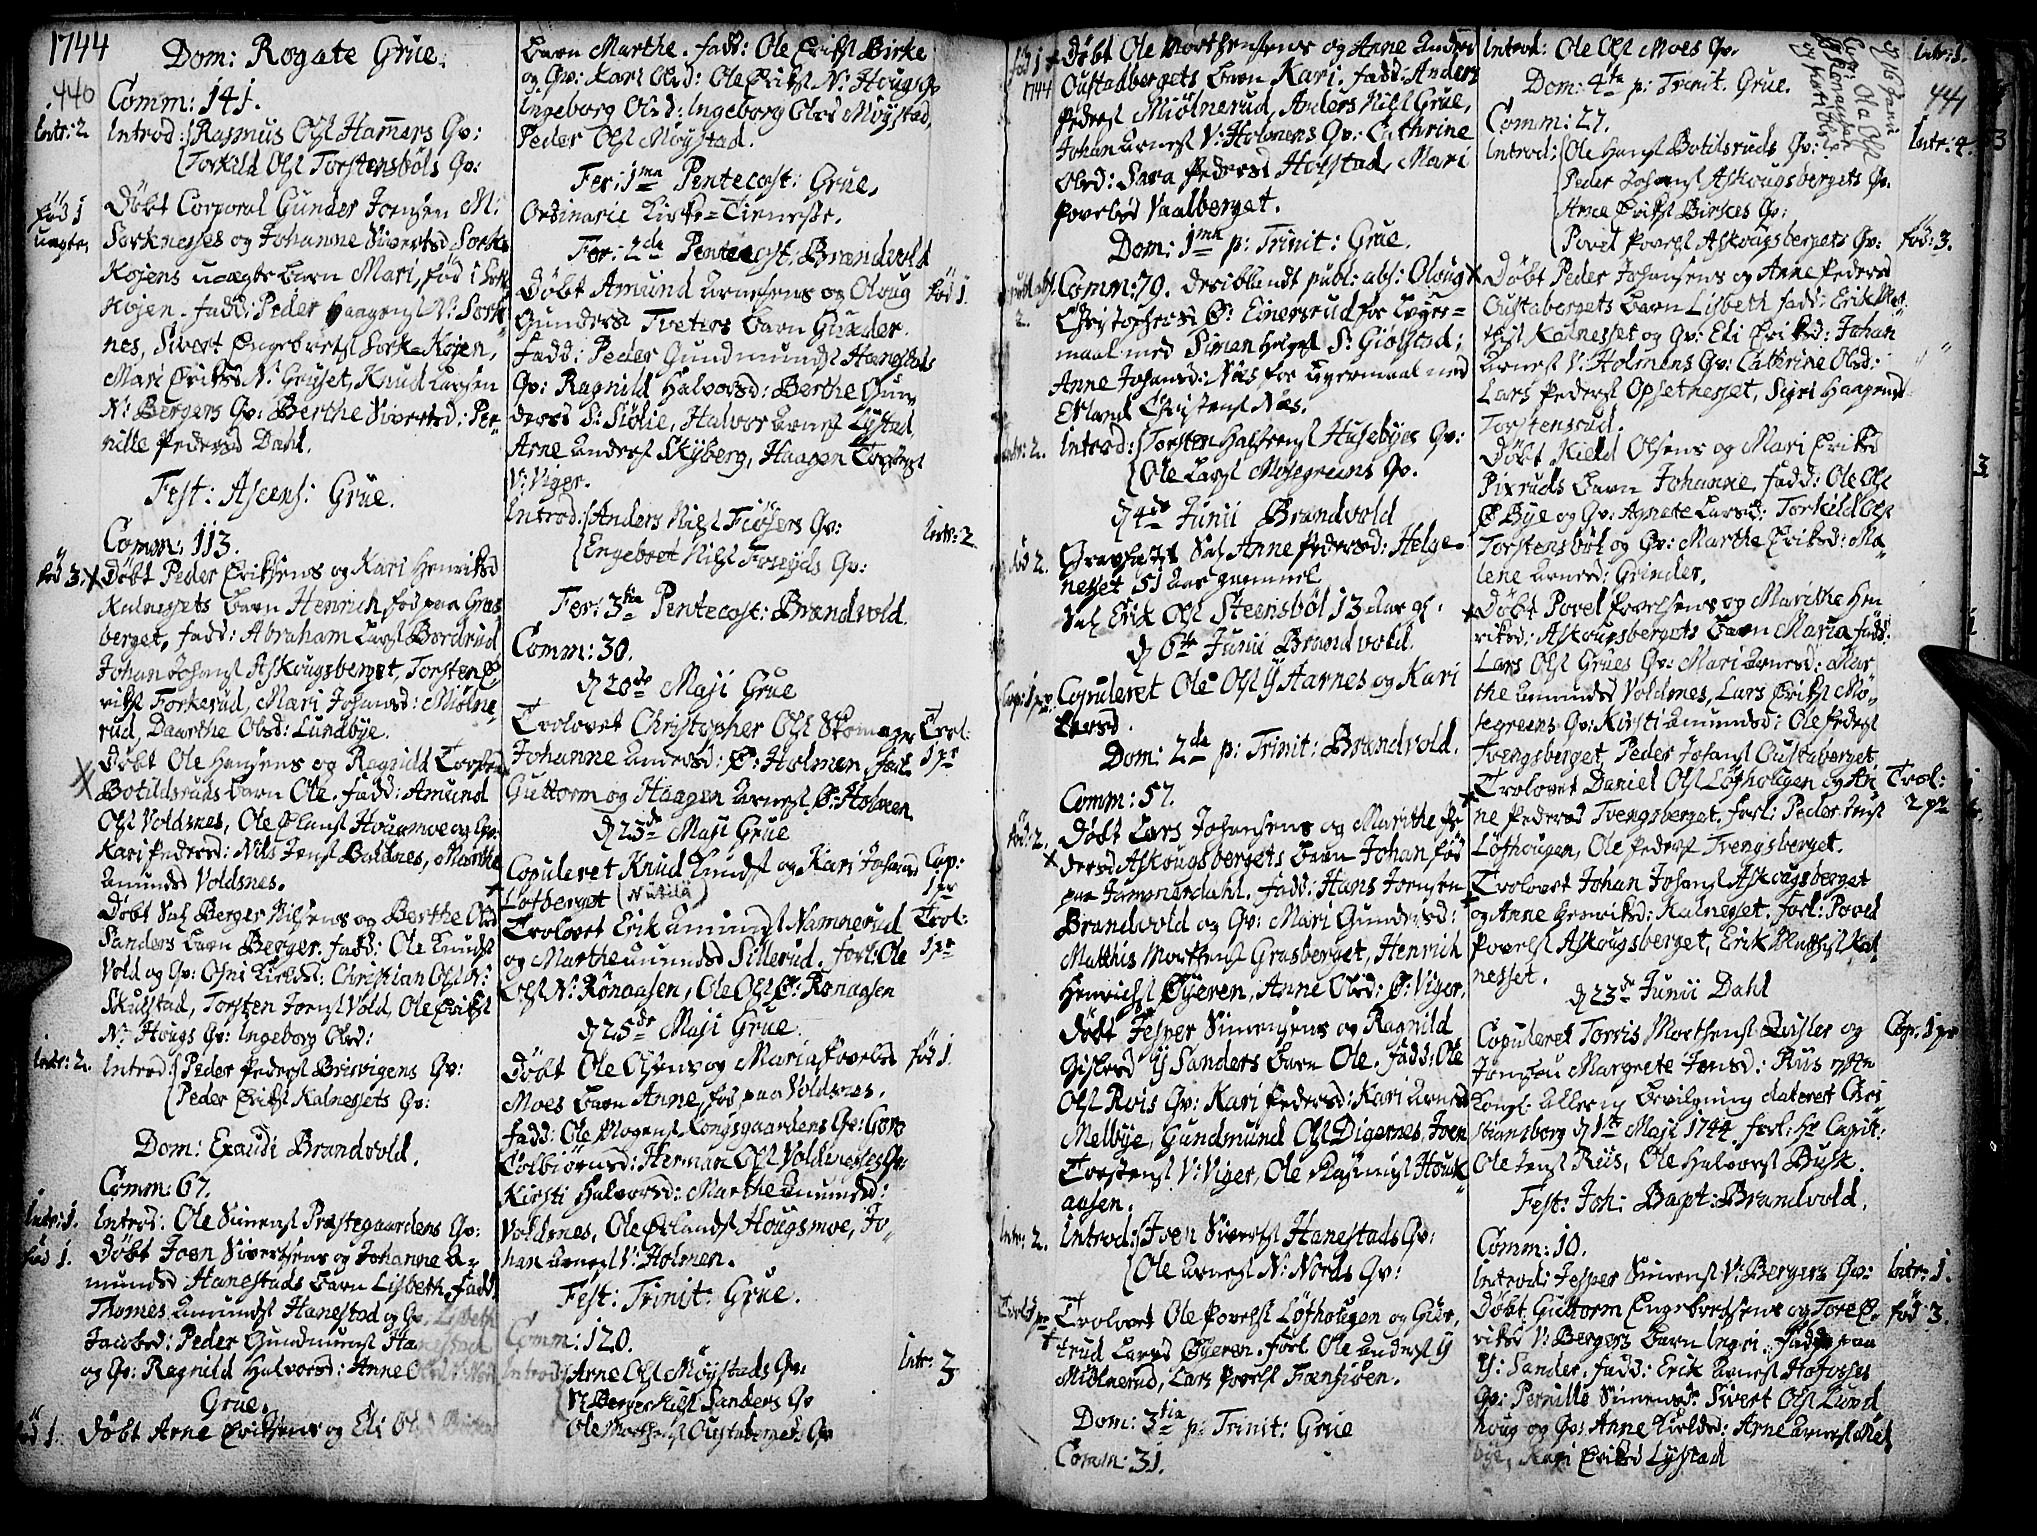 1744
Dom: Rogate Grue.
440
Comm: 141.
Intr: 2
Introd: Rasmus Ols Hamers Qv:
Torkild Ols Torstensbøls Qv:
Fød 1
uægte
Døbt Corporal Gunder Joensen N:
Sorknesses og Johanne Sivertsd Sork-
Kojens uægte barn Mari, fød i Sork-
Kojen. fadd: Peder Haagens N: Sork-
nes, Sivert Engebrets Sork-Kojen,
Mari Eriksd N: Gruset, Knud Larsen
N: Bergers Qv: Berthe Sivertsd: Per-
nille Pedersd Dahl.
Fest: Ascens: Grue.
Comm: 113.
fød 3.
Døbt Peder Eriksens og Kari Henriksd
Kalnessets barn Henrich, fød paa Gras
berget, fadd: Abraham Lars Bordrud
Johan Johans Askougsberget, Torsten E-
riks Forkerud, Mari Johansd: Mølne,
rud, Daarthe Olsd: Lundbye.
Døbt Ole Hansens og Ragnild Torsd
Botildsruds barn Ole. fadd: Amund
Ols Voldsnes, Ole Erlans Hougsmoe og Qv:
Kari Pedersd: Nils Jens Baldnes, Marthe
Amundsd Voldsnes.
Døbt Sal Berger Nilsens og Berthe Olsd
Sanders barn Berger. fadd: Ole Knuds
Vold og Qv: Goni Kieldsd: Christian Ols N:
Skulstad, Torsten Jons Vold, Ole Eriks
N: Hougs Qv: Ingeborg Olsd:
Intr: 2.
Introd: Peder Peders Brisvigens Qv:
Peder Eriks Kalnessets Qv:
Dom: Exaudi Brandvold.
Comm: 67.
Intr: 1.
Introd: Ole Simens Præstegaardens Qv:
fød 1.
Døbt Joen Sivertsens og Johanne A-
mundsd Hanestads barn Lisbeth, fadd:
Thomes Amunds Hanestad og Qv. Lisbeth
Jacobsd: Peder Gundmuns Hanestad
og Qv: Ragnild Halvorsd: Anne
Grue.
fød 1.
Døbt Arne Eriksens og Eli Olsd Birkes
barn Marthe. fadd: Ole Eriks Birke
og Qv: Kari Olsd: Ole Eriks N: Hougs Qv
Ingeborg Olsd: Ingeborg Olsd Møystad,
Peder Ols Møystad.
Fer: 1ma Pentecost: Grue.
Ordinarie Kirke-Tieneste.
Fer: 2da Pentecost: Brandvold
Døbt Amund Arnesens og Oloug
fød 1.
Gundersd Tveters barn Gunder.
fadd: Peder Gundmunds Hanestads
Qv: Ragnild Halvorsd: Berthe Gun
dersd S: Siølie, Halvor Arnes Lystad,
Arne Anders Skyberg, Haagen Torstens
V: Viger.
Introd: Anders Nils Fiøsers Qv:
Intr: 2
Engebret Nils Foseyds Qv:
Fer: 3tia Pentecost: Brandvold.
Comm: 30.
d 20de Maji Grue
Trolovet Christopher Ols Skomager
Trol:
1 pr
Johanne Andersd: Ø: Holmen, forl.
Guttorm og Haagen Arnes Ø: Holmen
d 23de Maji Grue
Copuleret Knud Knuds og Kari Johansd
Cop:
1 pr
Lofberget (Nutila)
Trolovet Erik Amunds Namnerud
Trol:
1 pr
og Marthe Amundsd Sillerud. forl: Ole
Ols N: Rønaasen, Ole Ols Ø: Rønaasen
d 25de Maji Grue.
Døbt Ole Olsens og Maria Povelsd
fød 1.
Moes barn Anne, fød paa Voldsnes.
fadd: Ole Mogens Kongsgaardens Qv: Goro
Tolbiørnsd: Herman Ols Voldnesses Qv:
Kirsti Halvorsd: Marthe Amundsd:
Voldsnes, Ole Erlands Hougsmoe, Jo-
han Arnes V: Holmen.
Fest: Trinit: Grue.
Comm: 120.
Introd: Arne Ols Møystads Qv:
Intr: 3
Sl Berger Nils Sanders Qv
Ole Morthens Oustabergets Qv
fød 1
1744
Døbt Ole Morthensens og Anne Anders
Oustadbergets barn Kari. fadd: Anders
Peders Miølnerud, Anders Nils Grue,
Johan Arnes V: Holmens Qv: Cathrine
Olsd: Sara Pedersd Hofstad, Mari
Povelsd Vaalberget.
Dom: 1ma p: Trinit: Grue.
publ abs.
2.
Comm: 79. desiblandt publ: abs: Oloug
Christophersd Ø: Einersrud for Leyer-
maal med Simen Helges S: Giølstad;
Anne Johansd: Næs for Leyermaal med
Erland Christens Næs.
Intr: 2.
Introd: Torsten Halstens Husebyes Qv:
Ole Lars Mosegreens Qv.
d 4de Junii Brandvold
død 2.
Gravfæstet Sal Anne Pedersd: Helge-
nesset 51 aar gammel
Sal Erik Ols Steensbøl 13 aar gl.
d 6te Junii Brandvold.
Cop: 1 pr.
Copuleret Ole Ols Y Harnes og Kari
Larsd.
Dom: 2da p: Trinit: Brandvold.
Comm: 57.
fød: 2.
Døbt Lars Johansens og Marithe Pe
dersd Askougsbergets barn Johan fød
paa Jammerdahl. fadd: Hans Jornsen
Brandvold og Qv: Mari Gundersd:
Matthis Morthens Grasberget, Henrich
Henrichs Øyeren, Anne Olsd: Ø: Viger.
Døbt Jesper Simensens og Ragnild
Gislersd Y Sanders barn Ole. fadd: Ole
Ols Rois Qv: Kari Pedersd: Kari Arnesd
Melbye, Gundmund Ols Digernes, Joen
Torstens V: Viger, Ole Rasmus Houk-
aasen.
Intr: 2.
Introd: Joen Siverts Hanestads Qv:
Ole Arnes N: Nords Qv:
Trol: 1 pr
Trolovet Ole Povels Løfthougen og Giær-
trud Larsd Øyeren. forl. Ole Anders Y
Miølnerud, Lars Povels Fænsiøen.
Dom: 3tia p: Trinit: Grue
Comm: 31.
Introd: Ole Ols Moes Qv.
Intr: 1.
Dom: 4ta p: Trinit. Grue.
441
Comm: 27.
Introd: Ole Hans Botildsruds Qv:
Intr: 4.
Peder Johans Askougsbergets Qv.
Arne Eriks Birkes Qv:
Povel Povels Askougsbergets Qv:
fød: 3.
Døbt Peder Johansens og Anne Pedersd
Oustabergets barn Lisbeth fadd: Erik Mat
this Kalnesset og Qv: Eli Eriksd: Johan
Arnes V: Holmens Qv: Cathrine Olsd:
Lars Peders Opsetnesset, Sigri Haagensd
Torstensrud.
Døbt Kield Olsens og Mari Eriksd
Pixruds barn Johanne, fadd: Ole Ols
Ø Bye og Qv: Agnete Larsd: Torkild Ols
Torstensbøl og Qv: Marthe Eriksd: Ma-
lene Arnesd: Grinder.
Døbt Povel Povelsens og Marithe Hen
riksd: Askougsbergets barn Maria fadd:
Lars Ols Grues Qv: Mari Arnesd: Mar
the Amundsd Voldsnes, Lars Eriks Mo-
segreens Qv: Kirsti Amundsd: Ole Peders
Tvengsberget, Peder Johans Oustaberget
Trolovet Daniel Ols Løfthougen og An
Trol:
2 pr
ne Pedersd Tvengsberget, forl: Peder Jens
Løfthougen, Ole Peders Tvengsberget.
Trolovet Johan Johans Askougsberget
og Anne Henriksd: Kalnesset, forl: Povel
Povels Askougsberget, Erik Matthis Kal
nesset.
d 23de Junii Dahl
Copuleret Torris Morthens Qvisler og
Cop: 1 pr
Jomfru Margrete Jensd: Riis efter
Kongl: Allern Bevilgning dateret Chri
stiansborg d 1ste Maji 1744. forl: Hr Capit:
Ole Jens Riis, Ole Halvors Busk.
Fest: Joh: Bapt: Brandvold.
Comm: 10.
Introd: Jesper Simens V: Bergers Qv:
Intr: 1.
Døbt Guttorm Engebretsens og Tore E-
fød 3.
riksd V: Bergers barn Ingri. fødde paa
Y: Sander. fadd: Erik Arnes Hofosses
Qv: Pernille Simensd: Sivert Ols Lund
houg og Qv: Anne Kieldsd: Arne Arnes Mel
bye, Kari Eriksd Lystad